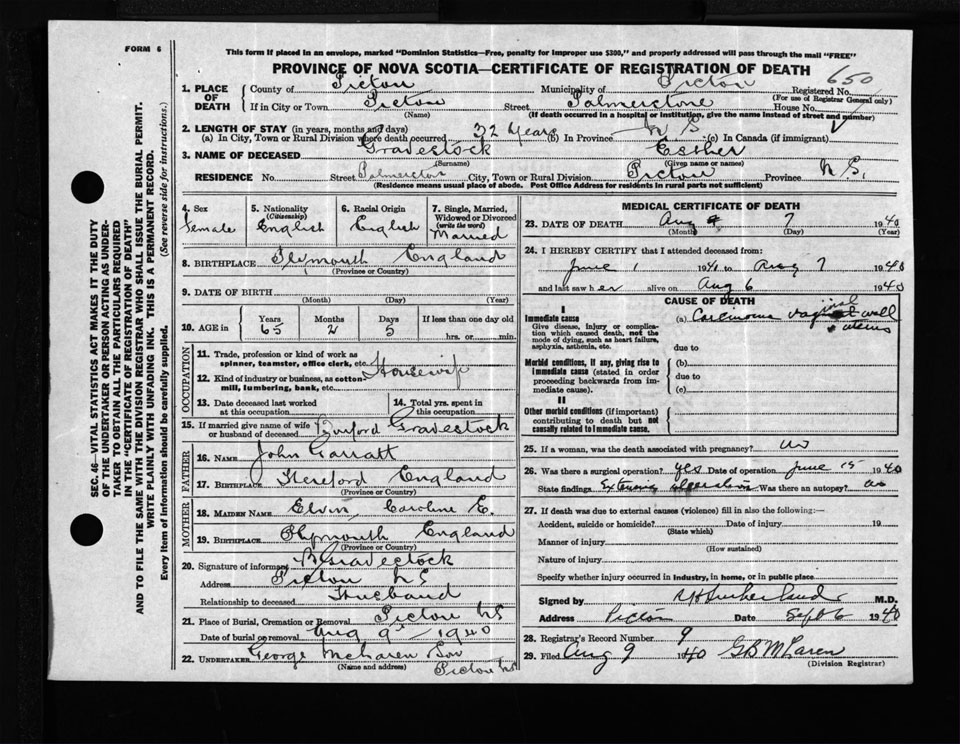 FORM 6
This form if placed in an envelope, marked "Dominion Statistics—Free, penalty for improper use $300," and properly addressed will pass through the mail "FREE"
PROVINCE OF NOVA SCOTIA—CERTIFICATE OF REGISTRATION OF DEATH
650
1. PLACE OF DEATH
County of Pictou Municipality of Pictou Registered No.
(For use of Registrar General only)
If in City or Town Pictou Street Palmerstone House No.
(Name) (If death occurred in a hospital or institution, give the name instead of street and number)
2. LENGTH OF STAY (in years, months and days)
(a) In City, Town or Rural Division where death occurred 32 Years (b) In Province N S (c) In Canada (if immigrant)
3. NAME OF DECEASED Gravestock Esther
(Surname) (Given name or names)
RESIDENCE No. Street Palmerston City, Town or Rural Division Pictou Province N S.
(Residence means usual place of abode. Post Office Address for residents in rural parts not sufficient)
4. Sex Female
5. Nationality (Citizenship) English
6. Racial Origin English
7. Single, Married, Widowed or Divorced (write the word) Married
8. BIRTHPLACE Plymouth England
(Province or Country)
9. DATE OF BIRTH
(Month) (Day) (Year)
10. AGE in Years Months Days If less than one day old
65 2 5 hrs. or min.
OCCUPATION
11. Trade, profession or kind of work as spinner, teamster, office clerk, etc. Housewife
12. Kind of industry or business, as cotton-mill, lumbering, bank, etc.
13. Date deceased last worked at this occupation
14. Total yrs. spent in this occupation
15. If married give name of wife or husband of deceased Gravestock
FATHER
16. NAME John Garratt
17. BIRTHPLACE Hereford England
(Province or Country)
MOTHER
18. MAIDEN NAME Elvin, Caroline E.
19. BIRTHPLACE Plymouth England
(Province or Country)
20. Signature of informant B Gravestock
Address Pictou N S
Relationship to deceased Husband
21. Place of Burial, Cremation or Removal Pictou N S
Date of burial or removal Aug 9 1940
22. UNDERTAKER George McLaren Son
(Name and address) Pictou N S
MEDICAL CERTIFICATE OF DEATH
23. DATE OF DEATH Aug 7 1940
(Month) (Day) (Year)
24. I HEREBY CERTIFY that I attended deceased from:
June 1 1940 to Aug 7 1940
and last saw her alive on Aug 6 1940
CAUSE OF DEATH
I
Immediate cause
Give disease, injury or complication which caused death, not the mode of dying, such as heart failure, asphyxia, asthenia, etc.
(a) Carcinoma vaginal wall
uterus
due to
Morbid conditions, if any, giving rise to immediate cause (stated in order proceeding backwards from immediate cause).
(b)
due to
(c)
II
Other morbid conditions (if important) contributing to death but not causally related to immediate cause.
25. If a woman, was the death associated with pregnancy? no
26. Was there a surgical operation? yes Date of operation June 15 1940
State findings Extensive Was there an autopsy? no
27. If death was due to external causes (violence) fill in also the following:—
Accident, suicide or homicide? Date of injury 19
(State which)
Manner of injury
(How sustained)
Nature of injury
Specify whether injury occurred in industry, in home, or in public place
Signed by M.D.
Address Pictou Date Sept 6 1940
28. Registrar's Record Number 9
29. Filed Aug 9 1940 G B McLaren
(Division Registrar)
SEC. 46—VITAL STATISTICS ACT MAKES IT THE DUTY
OF THE UNDERTAKER OR PERSON ACTING AS UNDER-
TAKER TO OBTAIN ALL THE PARTICULARS REQUIRED
IN THE "CERTIFICATE OF REGISTRATION OF DEATH"
AND TO FILE THE SAME WITH THE DIVISION REGISTRAR WHO SHALL ISSUE THE BURIAL PERMIT.
WRITE PLAINLY WITH UNFADING INK. THIS IS A PERMANENT RECORD.
Every item of information should be carefully supplied. (See reverse side for instructions.)